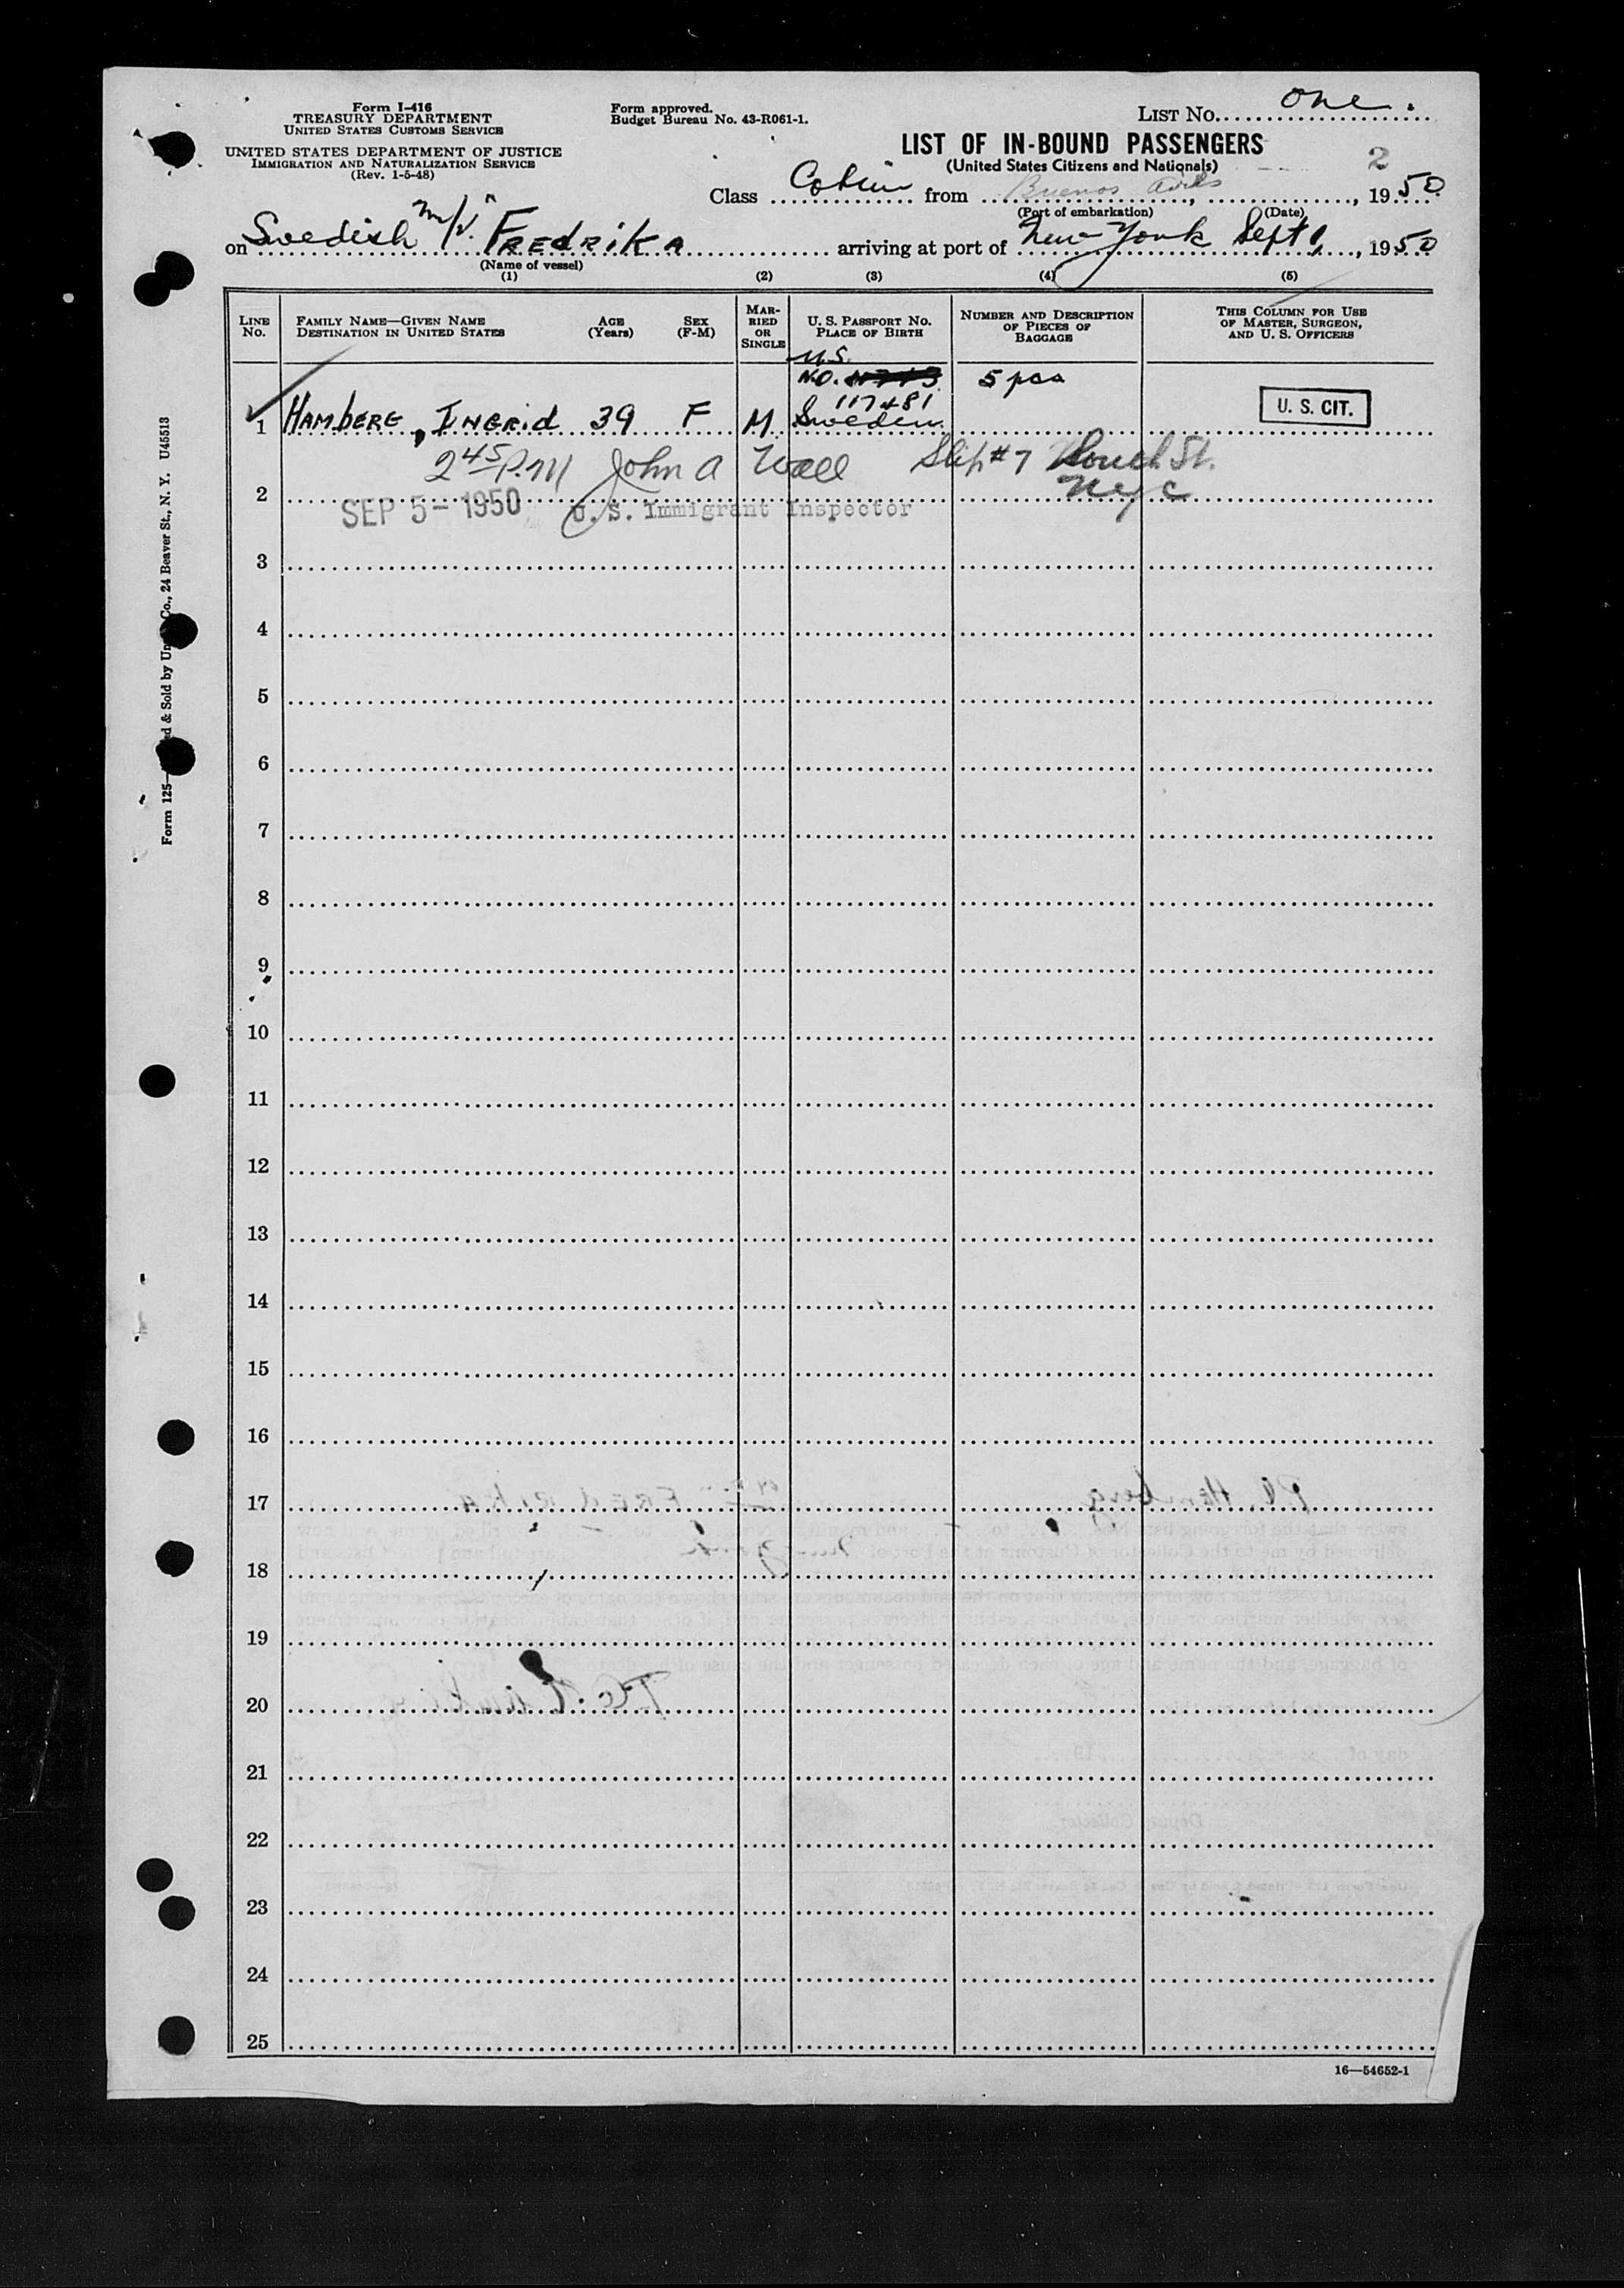 Form I-416
TREASURY DEPARTMENT
UNITED STATES CUSTOMS SERVICE
UNITED STATES DEPARTMENT OF JUSTICE
IMMIGRATION AND NATURALIZATION SERVICE
(Rev. 1-5-48)
Form approved.
Budget Bureau No. 43-R061-1.
LIST No. one.
LIST OF IN-BOUND PASSENGERS
(United States Citizens and Nationals)
2
Class Cabin from Buenos Aires, , 1950
(Port of embarkation) (Date)
on Swedish M/V. FREDRIKA arriving at port of New York Sept 1, 1950
(Name of vessel)
(1) (2) (3) (4) (5)
LINE No.
FAMILY NAME—GIVEN NAME DESTINATION IN UNITED STATES
AGE (Years)
SEX (F-M)
MARRIED OR SINGLE
U. S. PASSPORT NO. PLACE OF BIRTH
NUMBER AND DESCRIPTION OF PIECES OF BAGGAGE
THIS COLUMN FOR USE OF MASTER, SURGEON, AND U. S. OFFICERS
U.S.
NO. 5 pcs
117481
1 HAMBERG, INGRID 39 F M. Sweden. U. S. CIT.
2 45 P.M John A Wall Slip #7 South St.
2 NYC
SEP 5 - 1950 U. S. Immigrant Inspector
3
4
5
6
7
8
9
10
11
12
13
14
15
16
17
18
19
20
21
22
23
24
25
16—54652-1
Form 125 & Sold by Co., 24 Beaver St., N. Y. U45513